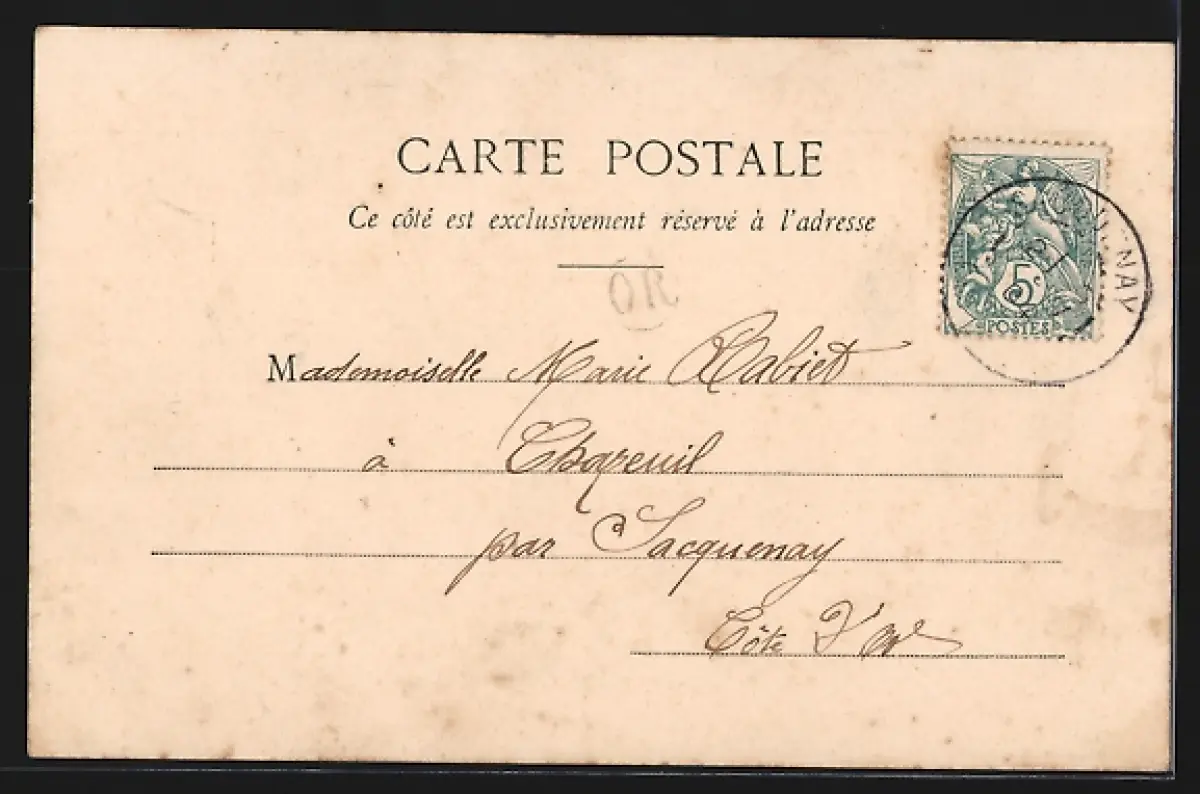 CARTE POSTALE
Ce côté est exclusivement réservé à l'adresse
OR
Mademoiselle Marie Rabiet
à
par Sacquenay
Côte d'or
5c
POSTES